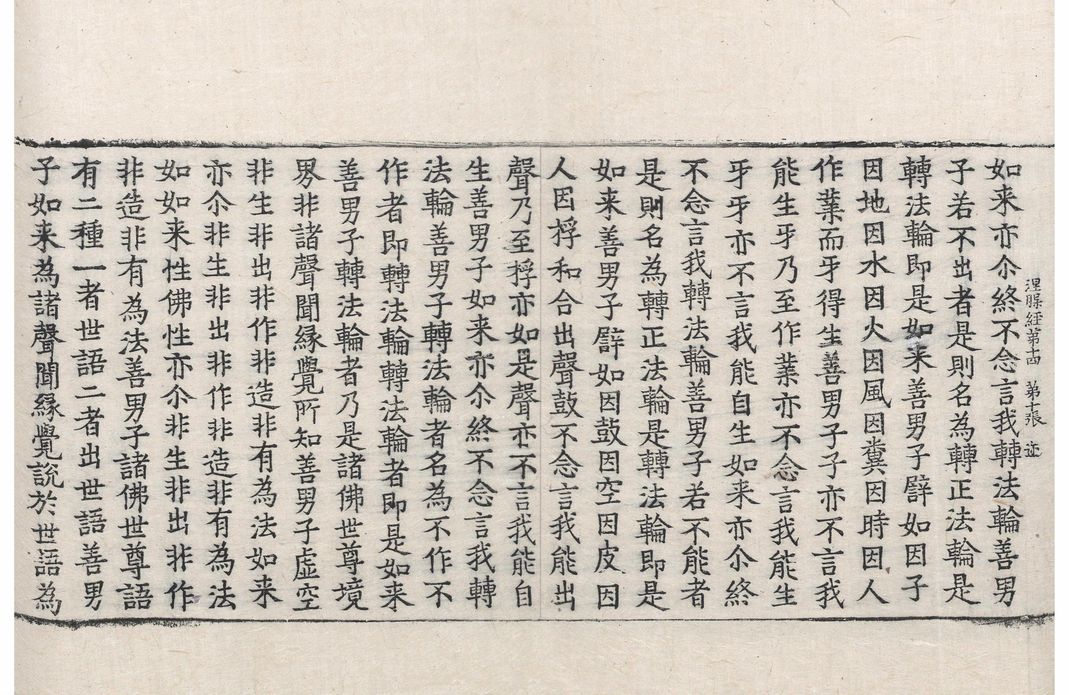 涅槃經第十四 第七張 迹
如来亦尒終不念言我轉法輪善男
子若不出者是則名為轉正法輪是
轉法輪即是如来善男子譬如因子
因地因水因火因風因糞因時因人
作業而牙得生善男子子亦不言我
能生牙乃至作業亦不念言我能生
牙牙亦不言我能自生如来亦尒終
不念言我轉法輪善男子若不能者
是則名為轉正法輪是轉法輪即是
如来善男子譬如因鼓因空因皮因
人因桴和合出聲鼓不念言我能出
聲乃至桴亦如是聲亦不言我能自
生善男子如来亦尒終不念言我轉
法輪善男子轉法輪者名為不作不
作者即轉法輪轉法輪者即是如来
善男子轉法輪者乃是諸佛世尊境
界非諸聲聞縁覺所知善男子虛空
非生非出非作非造非有為法如来
亦尒非生非出非作非造非有為法
如如来性佛性亦尒非生非出非作
非造非有為法善男子諸佛世尊語
有二種一者世語二者出世語善男
子如来為諸聲聞縁覺說於世語為